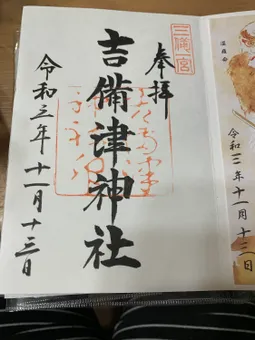 三備一宮
奉拝
吉備津神社
令和三年十一月十三日
令和三年十一月十三日